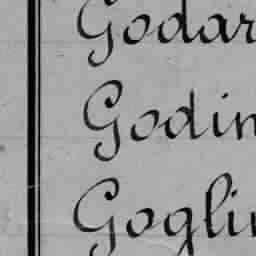 Godar
Godin
Goglin